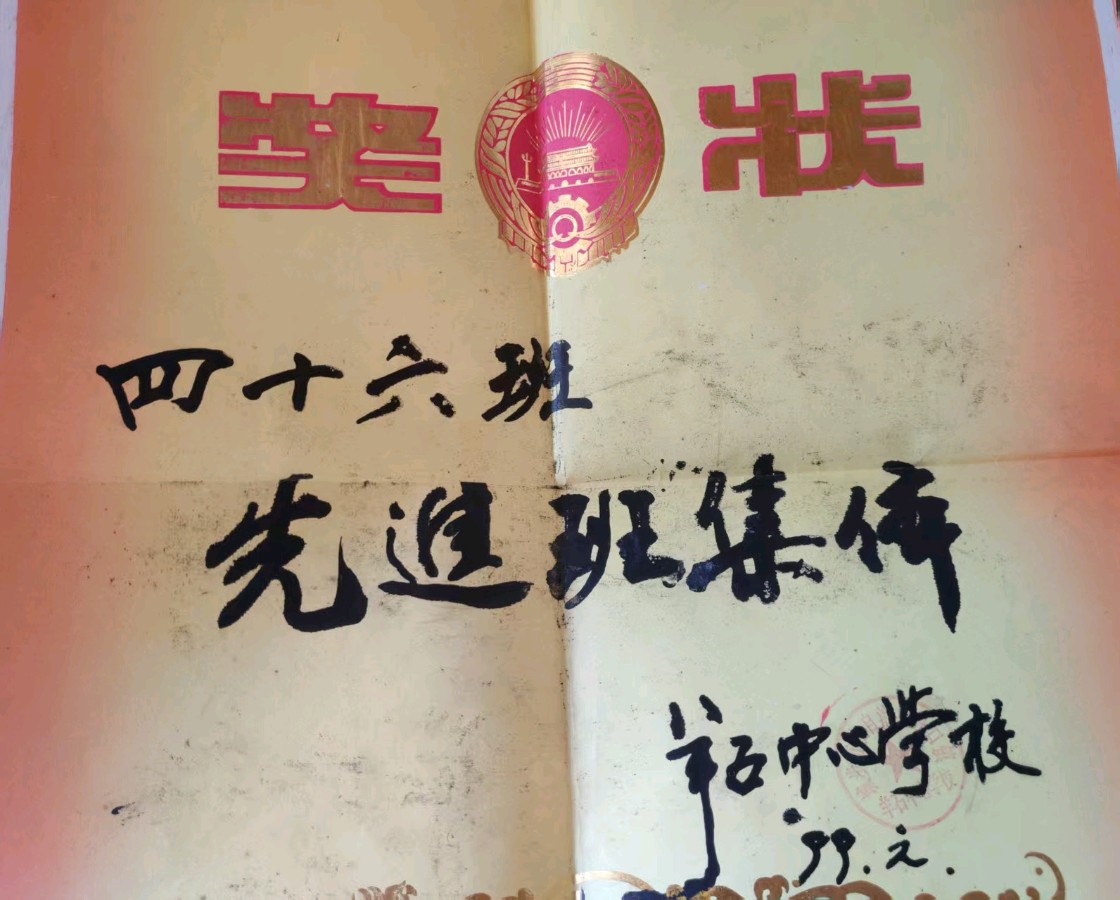 奖状
四十六班
先進班集体
羊石中心学校
'99.元.